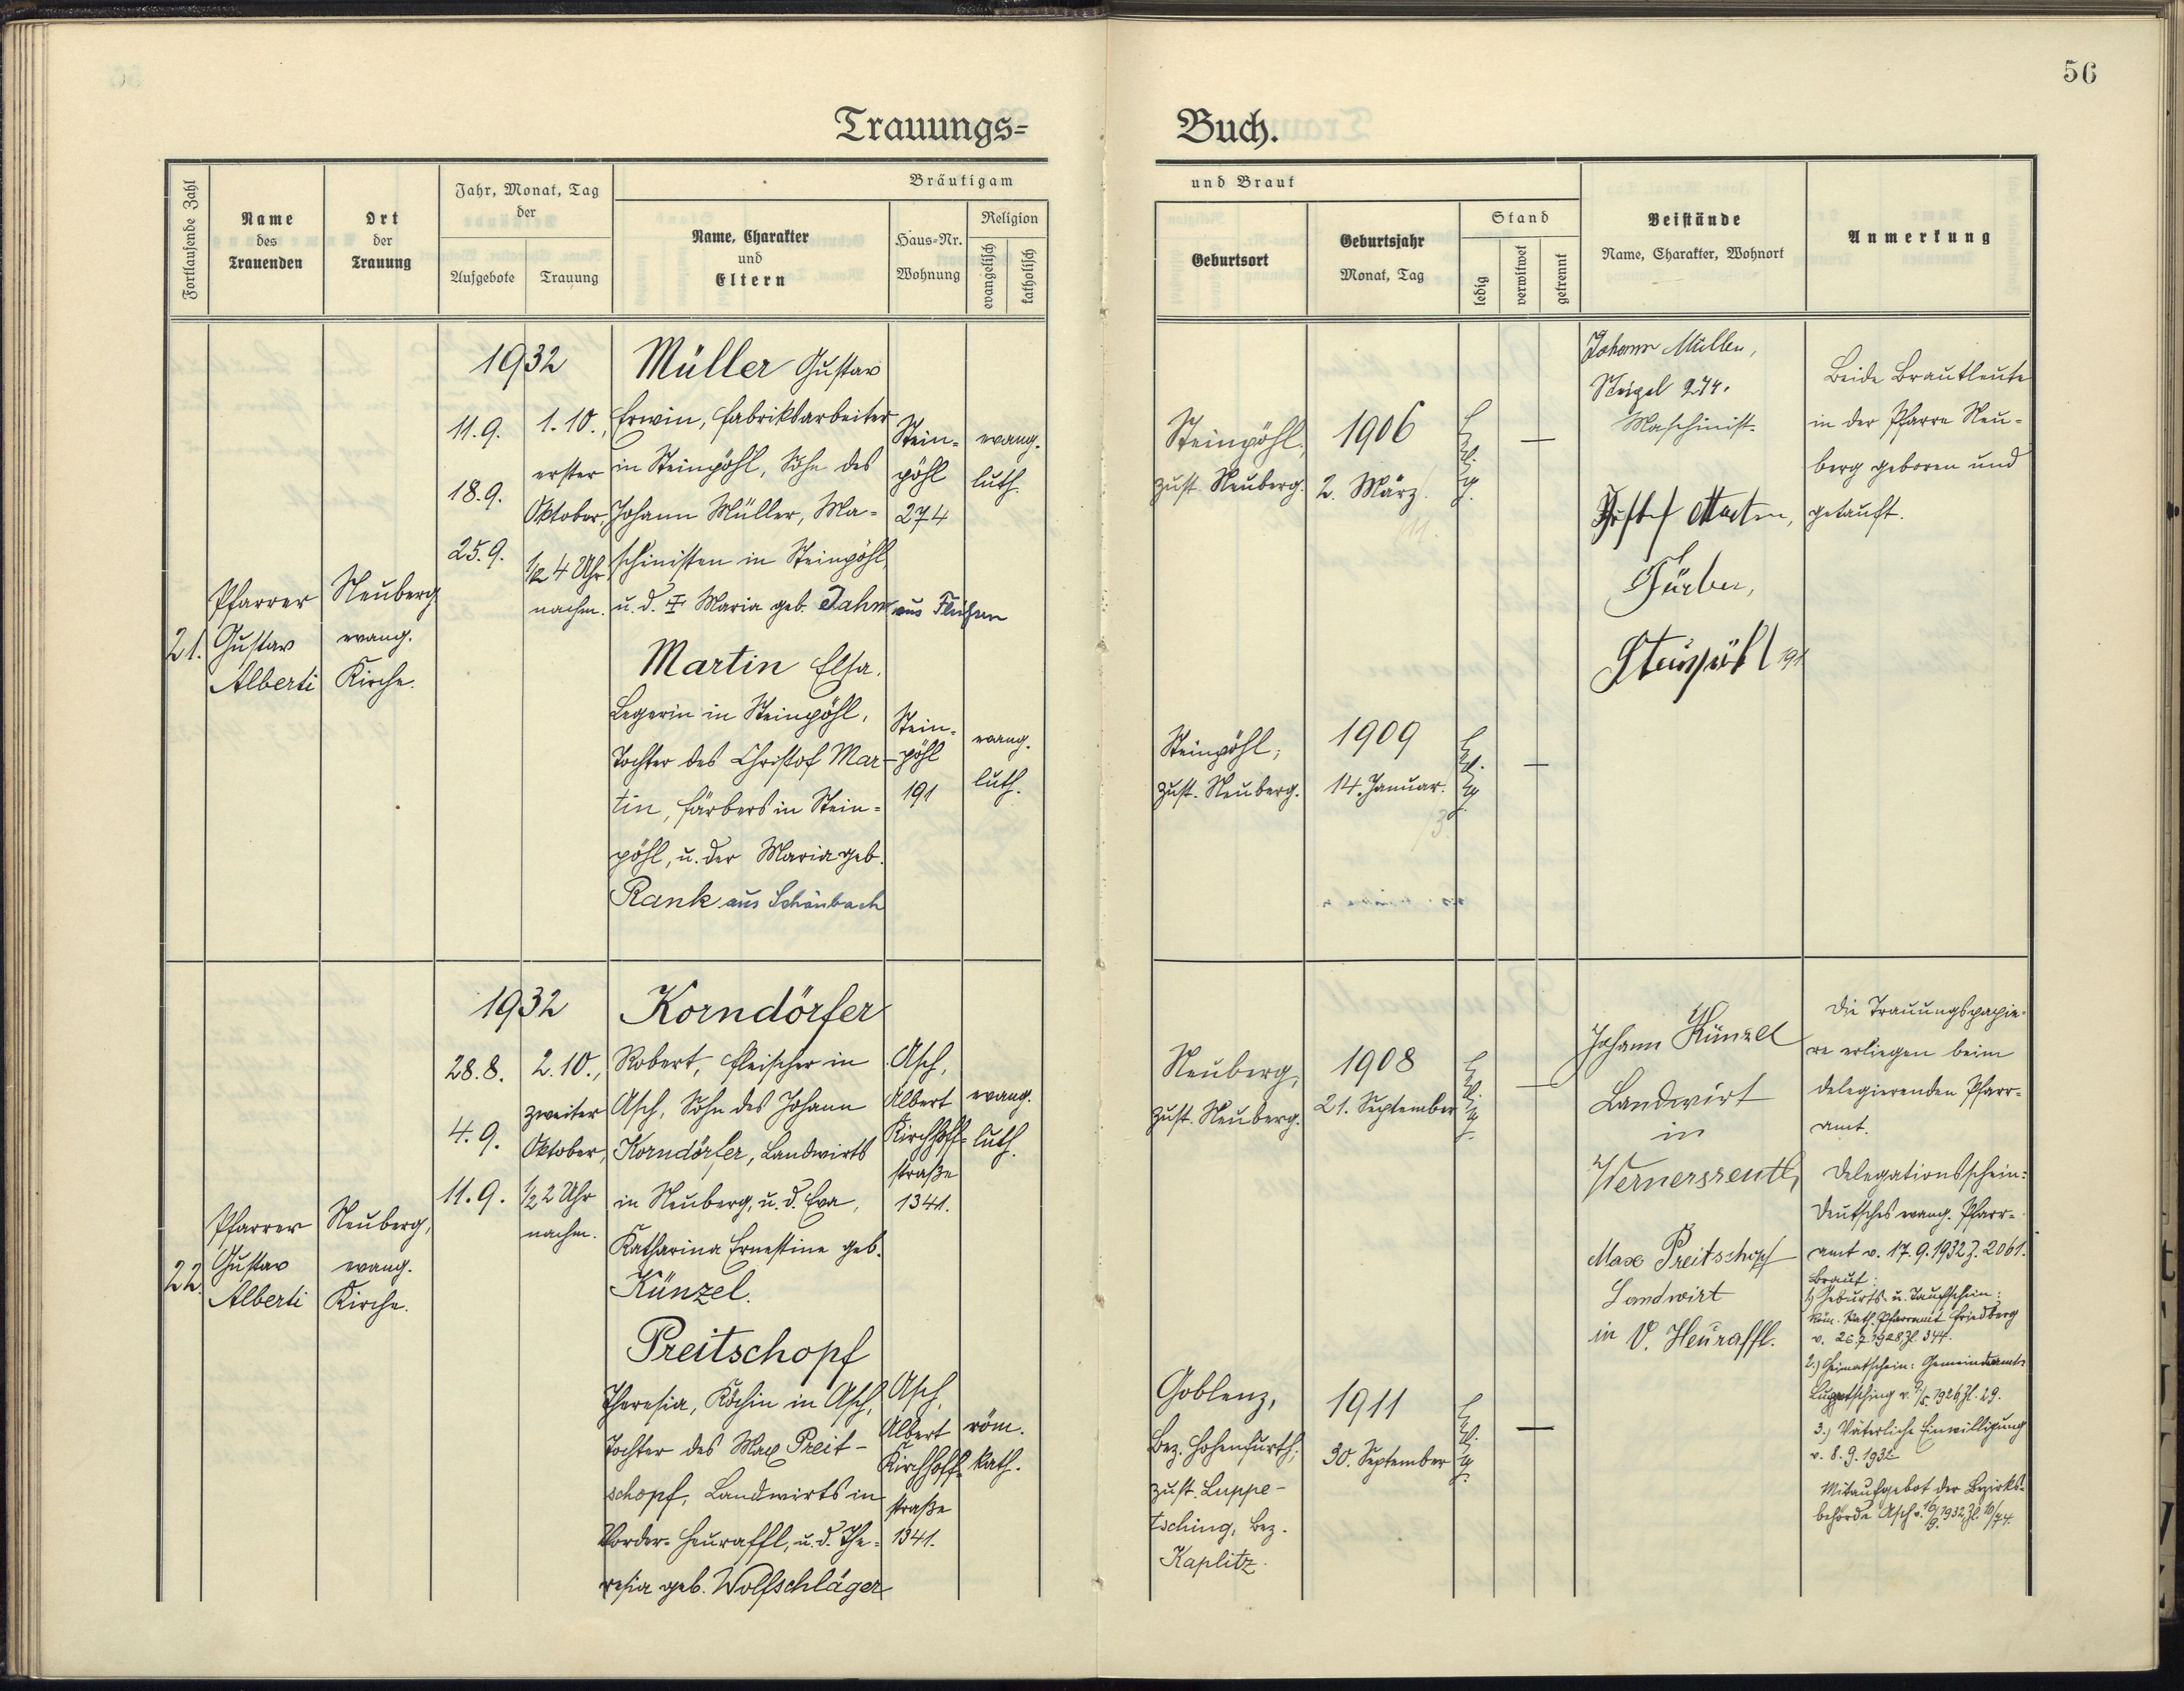 56
Trauungs= Buch.
Fortlaufende Zahl
Name
des
Trauenden
Ort
der
Trauung
Jahr, Monat, Tag
der
Aufgebote
Trauung
Bräutigam
Name, Charakter
und
Eltern
Haus=Nr.
Wohnung
Religion
evangelisch
katholisch
und Braut
Geburtsort
Geburtsjahr
Monat, Tag
Stand
ledig
verwitwet
getrennt
Beistände
Name, Charakter, Wohnort
Anmerkung
21.
Pfarrer
Gustav
Alberti
Neuberg
evang.
Kirche.
1932
11.9.
18.9.
25.9.
1.10.,
erster
Oktober,
1/2 4 Uhr
nachm.
Müller Gustav
Erwin, Fabriksarbeiter
in Steinpöhl, Sohn des
Johann Müller, Ma=
schinisten in Steinpöhl,
u. d. Maria geb. Jahn aus
Stein=
pöhl
274
evang.
luth.
Martin Elsa,
Legerin in Steinpöhl,
Tochter des Christof Mar-
tin, Färbers in Stein=
pöhl, u. der Maria geb.
Rank aus Schönbach
Stein=
pöhl
191
evang.
luth.
Steinpöhl,
zust. Neuberg.
1906
2. März.
ledig.
—
Steinpöhl,
zust. Neuberg.
1909
14. Januar.
ledig.
—
Johann Müller,
274.
Maschinist.
Christof Martin,
Färber,
Steinpöhl 191
Beide Brautleute
in der Pfarre Neu=
berg geboren und
getauft.
22.
Pfarrer
Gustav
Alberti
Neuberg,
evang.
Kirche.
1932
28.8.
4.9.
11.9.
2.10.,
zweiter
Oktober,
1/2 2 Uhr
nachm.
Korndörfer
Robert, Fleischer in
Asch, Sohn des Johann
Korndörfer, Landwirts
in Neuberg, u. d. Eva,
Katharina Ernestine geb.
Künzel.
Asch,
Albert
Kirchhoff=
straße
1341.
evang.
luth.
Preitschopf
Theresia, Köchin in Asch,
Tochter des Max Preit-
schopf, Landwirts in
Vorder-Heuraffl, u. d. The=
resia geb. Wolfschläger
Asch,
Albert
Kirchhoff=
straße
1341.
röm.
kath.
Neuberg,
zust. Neuberg.
1908
21. September
ledig.
—
Goblenz,
Bez. Hohenfurth;
zust. Luppe-
tsching, Bez.
Kaplitz.
1911
30. September
ledig.
—
Johann Künzel
Landwirt
in
Wernersreuth,
Max Preitschopf
Landwirt
in V. Heuraffl.
Die Trauungspapie=
re erliegen beim
delegierenden Pfarr=
amt.
Delegationsschein:
Deutsches evang. Pfarr=
amt v. 17.9.1932 Z. 2061.
Braut:
1.) Geburts- u. Taufschein:
Röm. kath. Pfarramt Friedberg
v. 26.7.1928 Zl. 344.
2.) Heimatschein: Gemeindeamt
Luppetsching v. 1926, Zl. 29.
3.) Väterliche Einwilligung
v. 8.9.1932
Mitaufgebot der Bezirks=
behörde Asch v. 1932, Zl.